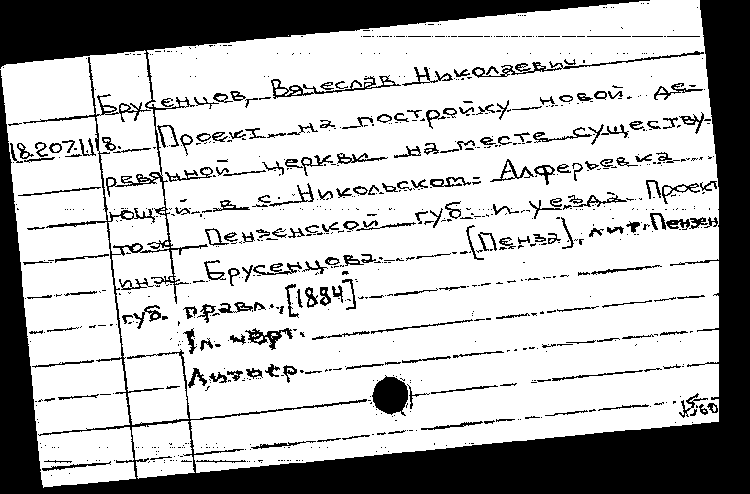 Брусенцов, Вячеслав Николаевич.
18.207.1118. Проект на постройку новой де-
ревянной церкви на месте существу-
ющей, в с. Никольском = Алферьевка
тож, Пензенской губ. и уезда Проект
инж Брусенцова. [Пенза], лит. Пензен
губ. правл., [1884].
1 л. черт.
Литогр.